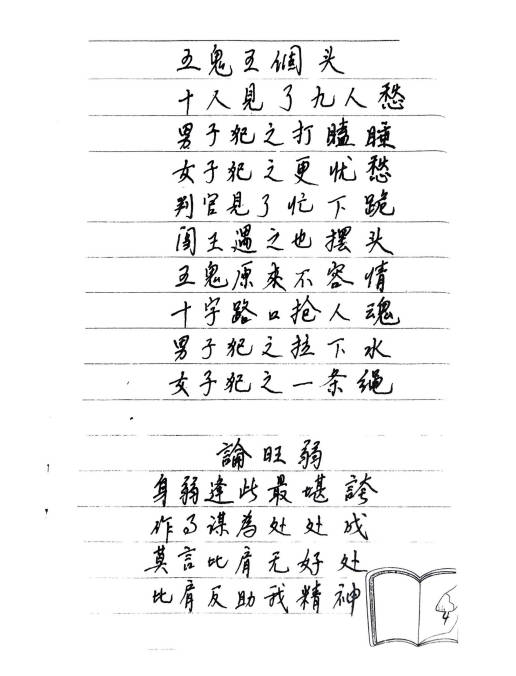 五鬼五個头
十人見了九人愁
男子犯之打瞌睡
女子犯之更忧愁
判官見了忙下跪
阎王遇之也摆头
五鬼原來不容情
十字路口抢人魂
男子犯之拉下水
女子犯之一条绳
論旺弱
身弱逢此最堪誇
作了谋為处处成
莫言比肩无好处
比肩反助我精神
4